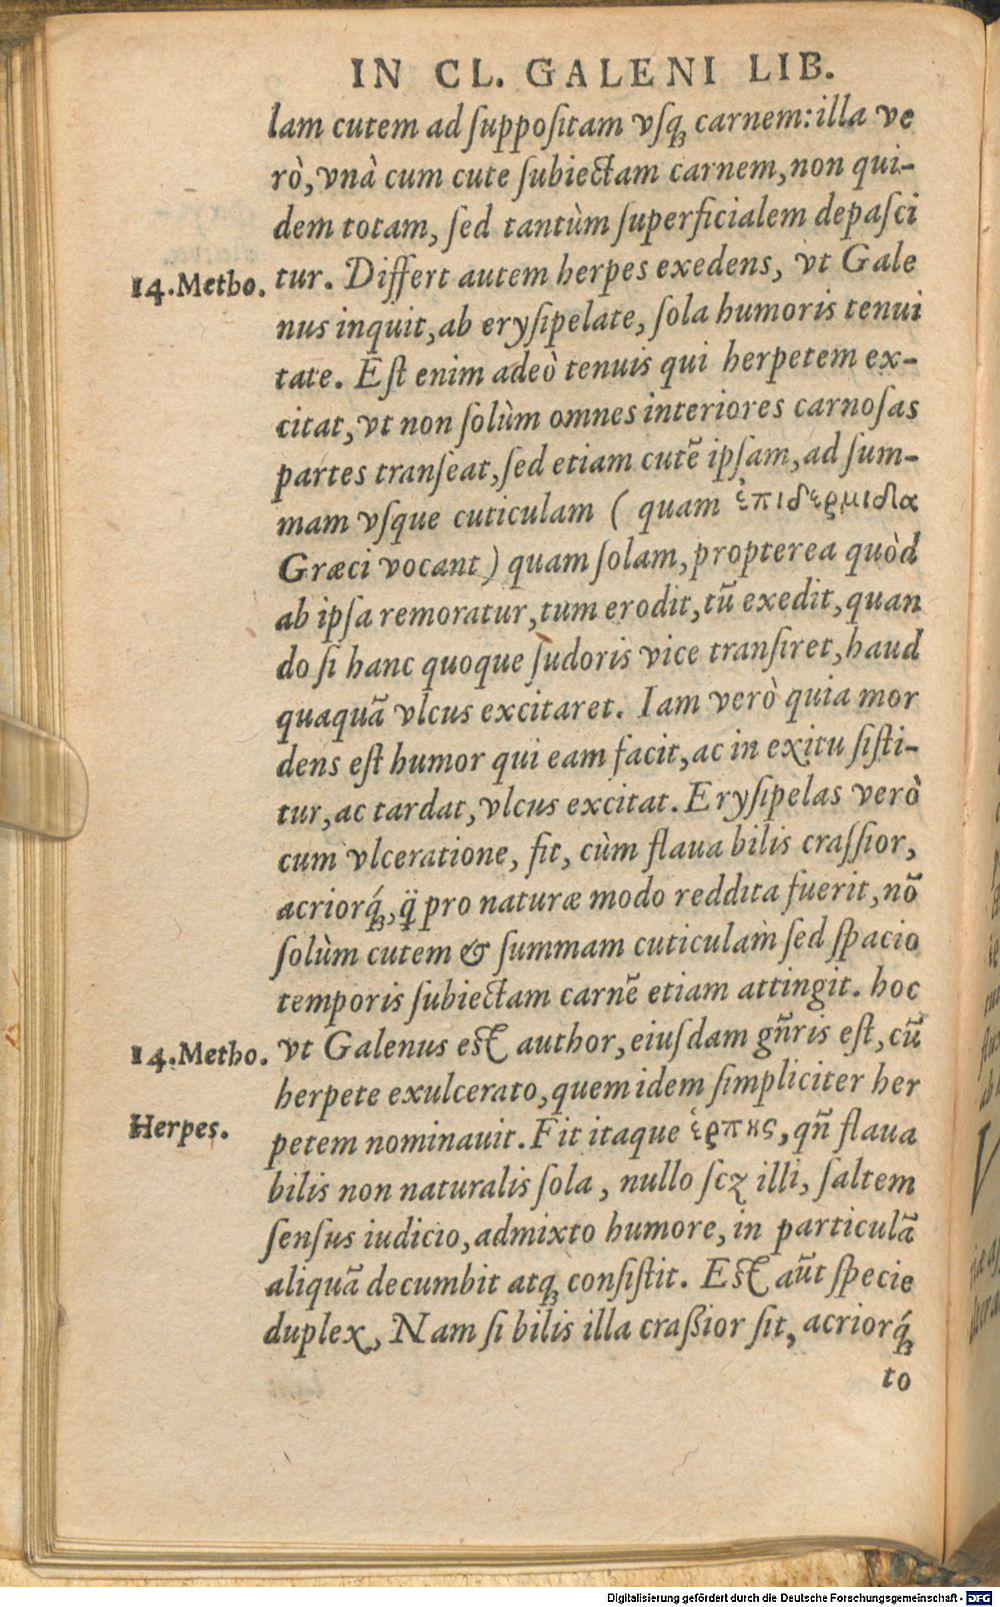 IN CL. GALENI LIB.
lam cutem ad ſuppoſitam vſq; carnem: illa ve
rò, vnà cum cute ſubiectam carnem, non qui-
dem totam, ſed tantùm ſuperficialem depaſci
14. Metho.
tur. Differt autem herpes exedens, vt Gale
nus inquit, ab eryſipelate, ſola humoris tenui
tate. Eſt enim adeò tenuis qui herpetem ex-
citat, vt non ſolùm omnes interiores carnoſas
partes tranſeat, ſed etiam cutē ipſam, ad ſum-
mam vſque cuticulam ( quam ἐπιδερμιδα
Græci vocant ) quam ſolam, propterea quòd
ab ipſa remoratur, tum erodit, tū exedit, quan
do ſi hanc quoque ſudoris vice tranſiret, haud
quaquā vlcus excitaret. Iam verò quia mor
dens eſt humor qui eam facit, ac in exitu ſiſti-
tur, ac tardat, vlcus excitat. Eryſipelas verò
cum vlceratione, fit, cùm flaua bilis craſſior,
acriorq́;, q̃ pro naturæ modo reddita fuerit, nō
ſolùm cutem & ſummam cuticulam ſed ſpacio
temporis ſubiectam carnē etiam attingit. hoc
14. Metho.
vt Galenus eſt author, eiuſdam gñris eſt, cū
herpete exulcerato, quem idem ſimpliciter her
Herpes.
petem nominauit. Fit itaque ἑρπης, qñ flaua
bilis non naturalis ſola, nullo ſcꝫ illi, ſaltem
ſenſus iudicio, admixto humore, in particulā
aliquā decumbit atq; conſiſtit. Eſt aūt ſpecie
duplex, Nam ſi bilis illa craßior ſit, acriorq́;
to
Digitalisierung gefördert durch die Deutsche Forschungsgemeinschaft - DFG